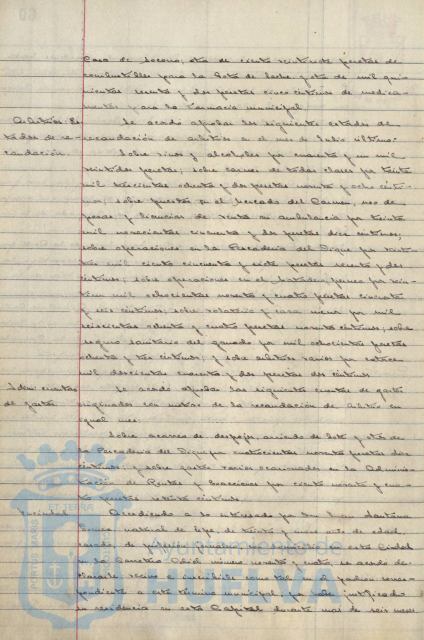 Casa de Socorro, otra de ciento veintiocho pesetas de
combustibles para la Gota de Leche y otra de mil quin
ientas setenta y dos pesetas cinco céntimos de medica-
mentos para la farmacia municipal.
Arbitrios. Es- Se acordó aprobar los siguientes estados de
tados de re- recaudación de arbitrios en el mes de Julio último:
caudación. Sobre vinos y alcoholes por cuarenta y un mil
veintidos pesetas; sobre carnes de todas clases por treinta
mil trescientas ochenta y dos pesetas noventa y ocho cénti-
mos; sobre puestos en el Mercado del Carmen, uso de
pesas y licencias de venta en ambulancia por treinta
mil novecientas cincuenta y dos pesetas diez céntimos;
sobre operaciones en la Pescadería del Dique por veinti
mil ciento cincuenta y siete pesetas setenta y dos
céntimos; sobre operaciones en el Matadero por
mil ochocientas noventa y cuatro pesetas cincuenta
y seis céntimos; sobre rodaje y por mil
seiscientas ochenta y cuatro pesetas noventa céntimos; sobre
seguro sanitario del ganado por mil ochocientas pesetas
ochenta y tres céntimos; y sobre arbitrios varios por catorce
mil doscientas cuarenta y dos pesetas dos céntimos.
Idem cuentas Se acordó aprobar las siguientes cuentas de gastos
de gastos. originados con motivo de la recaudación de arbitrios en
igual mes:
Sobre acarreo de despojos, arriendo de bote y otros de
la Pescadería del Dique por cuatrocientas noventa pesetas dos
céntimos; y sobre gastos varios ocasionados en la Adminis-
tración de Rentas y Exacciones por ciento noventa y cua-
tro pesetas setenta céntimos.
Vecindad. Accediendo a lo interesado por Don Juan Santana
Gomez natural de Lepe, de treinta y años de edad,
casado, de profesión en esta Ciudad
en la Carretera Odiel número noventa y cuatro, se acordó de-
clararle vecino e incluirle como tal en el padrón corres-
pondiente a este término municipal, por haber justificado
su residencia en esta Capital durante más de seis meses
Ayuntamiento de
HUELVA